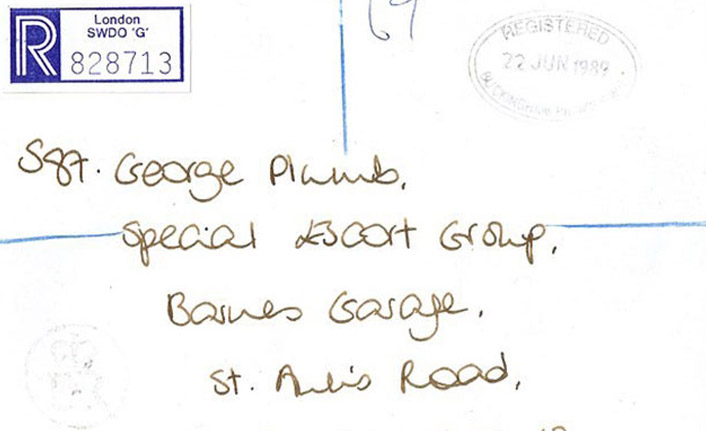 London
SWDO 'G'
R 828713
REGISTERED
22 JUN 1989
BUCKINGHAM PALACE
Sgt. George Plumb,
Special Escort Group,
Barnes Garage,
St. Ann's Road,